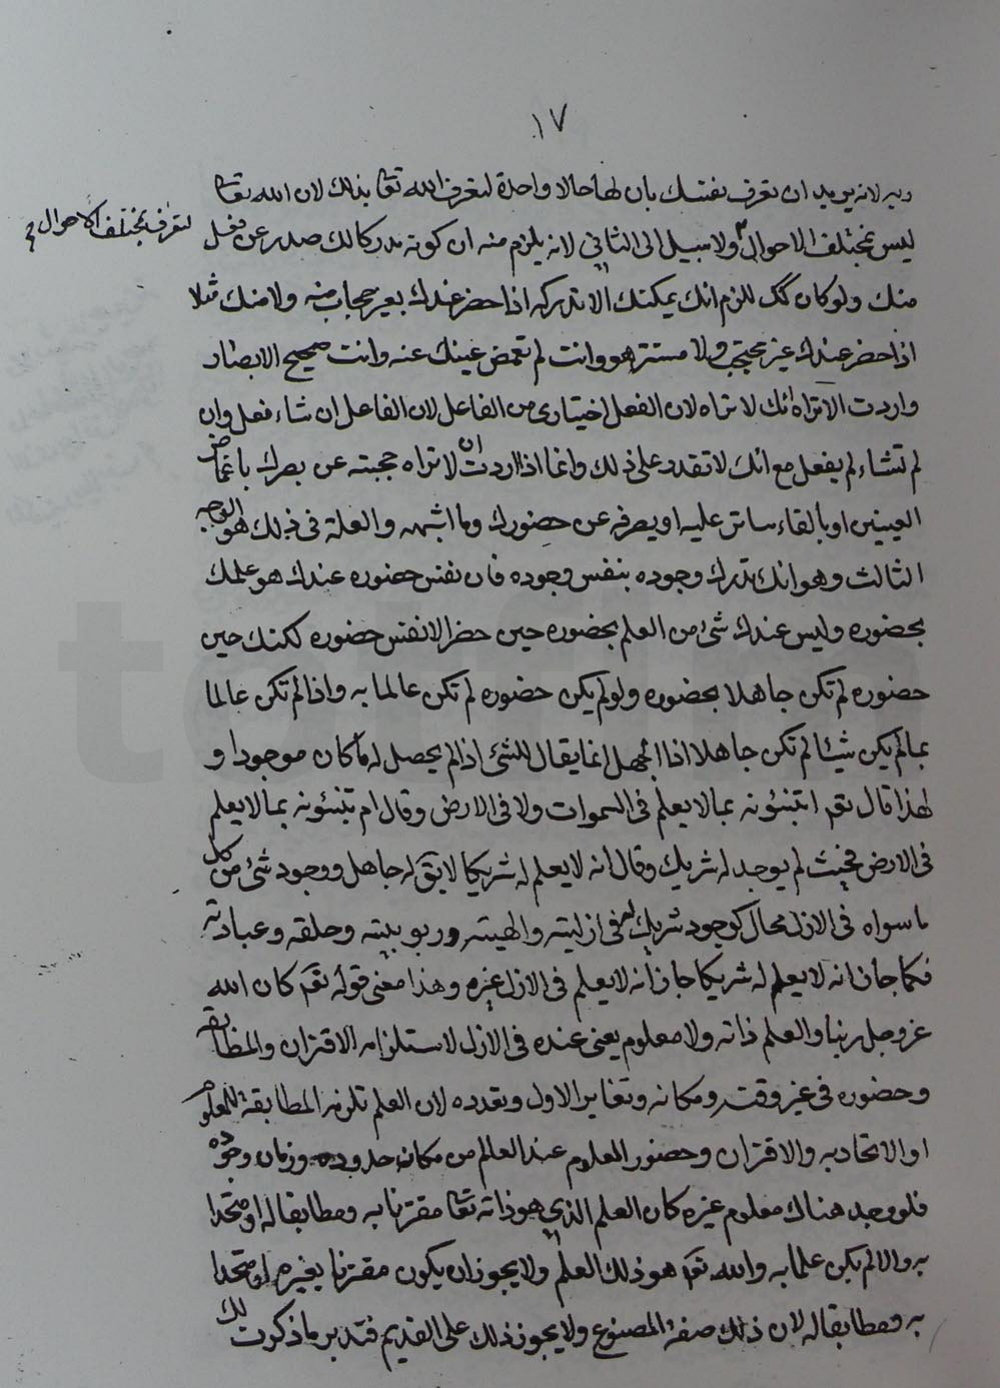 ١٧
وبه لانه يريد ان تعرف نفسك بان لها حالا واحدة لتعرف الله تعا بذلك لان الله تعا
ليس بمختلف الاحوال ولا سبيل الى الثاني لانه يلزم منه ان كونه مدركا لك صدر عن فعل
لتعرف بمختلف الاحوال
منك ولو كان كك للزم انك يمكنك الا تدركه اذا حضر عندك بغير حجاب منه ولا منك مثلا
اذا حضر عندك غير محتجب ولا مستتر هو وانت لم تغمض عينك عنه وانت صحيح الابصار
واردت الا تراه انك لا تراه لان الفعل اختيارى من الفاعل لان الفاعل ان شاء فعل وان
لم تشاء لم يفعل مع انك لا تقدر على ذلك وانما اذا اردت ان لا تراه حجبته عن بصرك باغماض
العينين او بالقاء ساتر عليه او بصرفه عن حضورك وما اشبهه والعلة فى ذلك هو الوجه
الثالث وهو انك تدرك وجوده بنفس وجوده فان نفس حضوره عندك هو علمك
بحضوره وليس عندك شئ من العلم بحضوره حين حضر الا نفس حضوره لكنك حين
حضوره لم تكن جاهلا بحضوره ولو لم يكن حضوره لم تكن عالما به واذا لم تكن عالما
بما لم يكن شيئا لم تكن جاهلا اذا الجهل انما يقال للشئ اذا لم يحصل له ما كان موجودا و
لهذا قال تعم اتنبئونه بما لا يعلم فى السموات ولا فى الارض وقال ام تنبئونه بما لا يعلم
فى الارض فحيث لم يوجد له شريك وقال انه لا يعلم له شريكا لا يق له جاهل ووجود شئ من كل
ما سواه فى الازل محال كوجود شريك له فى ازليته والهيته وربوبيته وخلقه وعبادته
فكما جاز انه لا يعلم له شريكا جاز انه لا يعلم فى الازل غيره وهذا معنى قوله تعم كان الله
عز وجل ربنا والعلم ذاته ولا معلوم يعنى عنده فى الازل لاستلزامه الاقتران والمطابقة
وحضوره فى غير وقته ومكانه وتغاير الاول وتعدده لان العلم تلزمه المطابقة للمعلوم
او الاتحاد به والاقتران وحضور المعلوم عند العالم من مكان حدوده وزمان وجوده
فلو وجد هناك معلوم غيره كان العلم الذي هو ذاته تعا مقترنا به ومطابقا له او متحدا
به والا لم يكن علما به والله تعم هو ذلك العلم ولا يجوز ان يكون مقترنا بغيره او متحدا
به ومطابقا له لان ذلك صفة المصنوع ولا يجوز ذلك على القديم فتدبر ما ذكرت لك